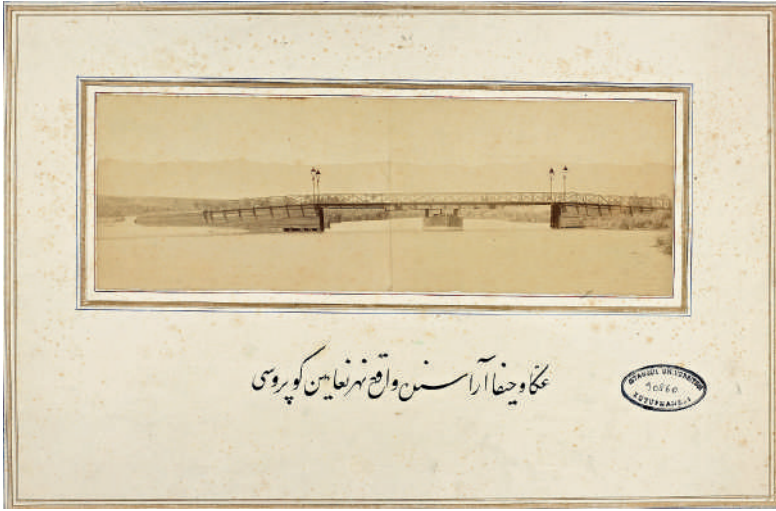 عكا و حيفا آراسنده واقع نهر نعامين كوپروسى
ISTANBUL ÜNİVERSİTESİ
90860
KÜTÜPHANESİ